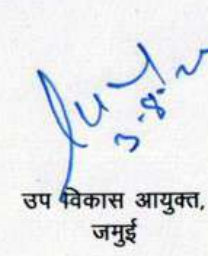 3.8.
उप विकास आयुक्त,
जमुई